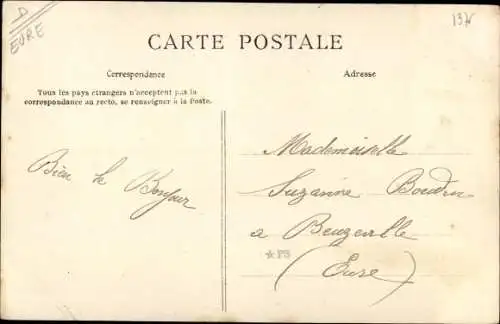 D
EURE
137
CARTE POSTALE
Correspondance
Adresse
Tous les pays étrangers n'acceptent pas la
correspondance au recto, se renseigner à la Poste.
Bien le Bonjour
Mademoiselle
Suzanne Boudin
a Beuzeville
(Eure)
★PS